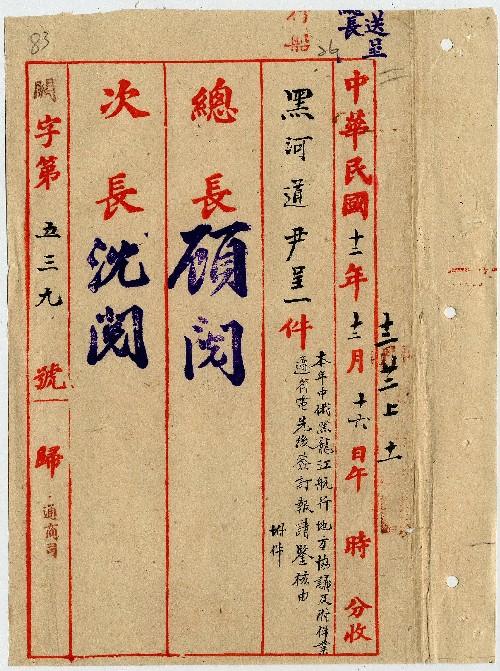 送呈
長
行船
83
中華民國十二年十二月十六日午 時 分收
十二 廿二 上 十一
黑河道尹呈一件
本年中俄黑龍江航行地方協議及附件業
遵省電先後簽訂報請鑒核由
附件
總長 顧閱
次長 沈閱
關字第五三九號 歸通商司